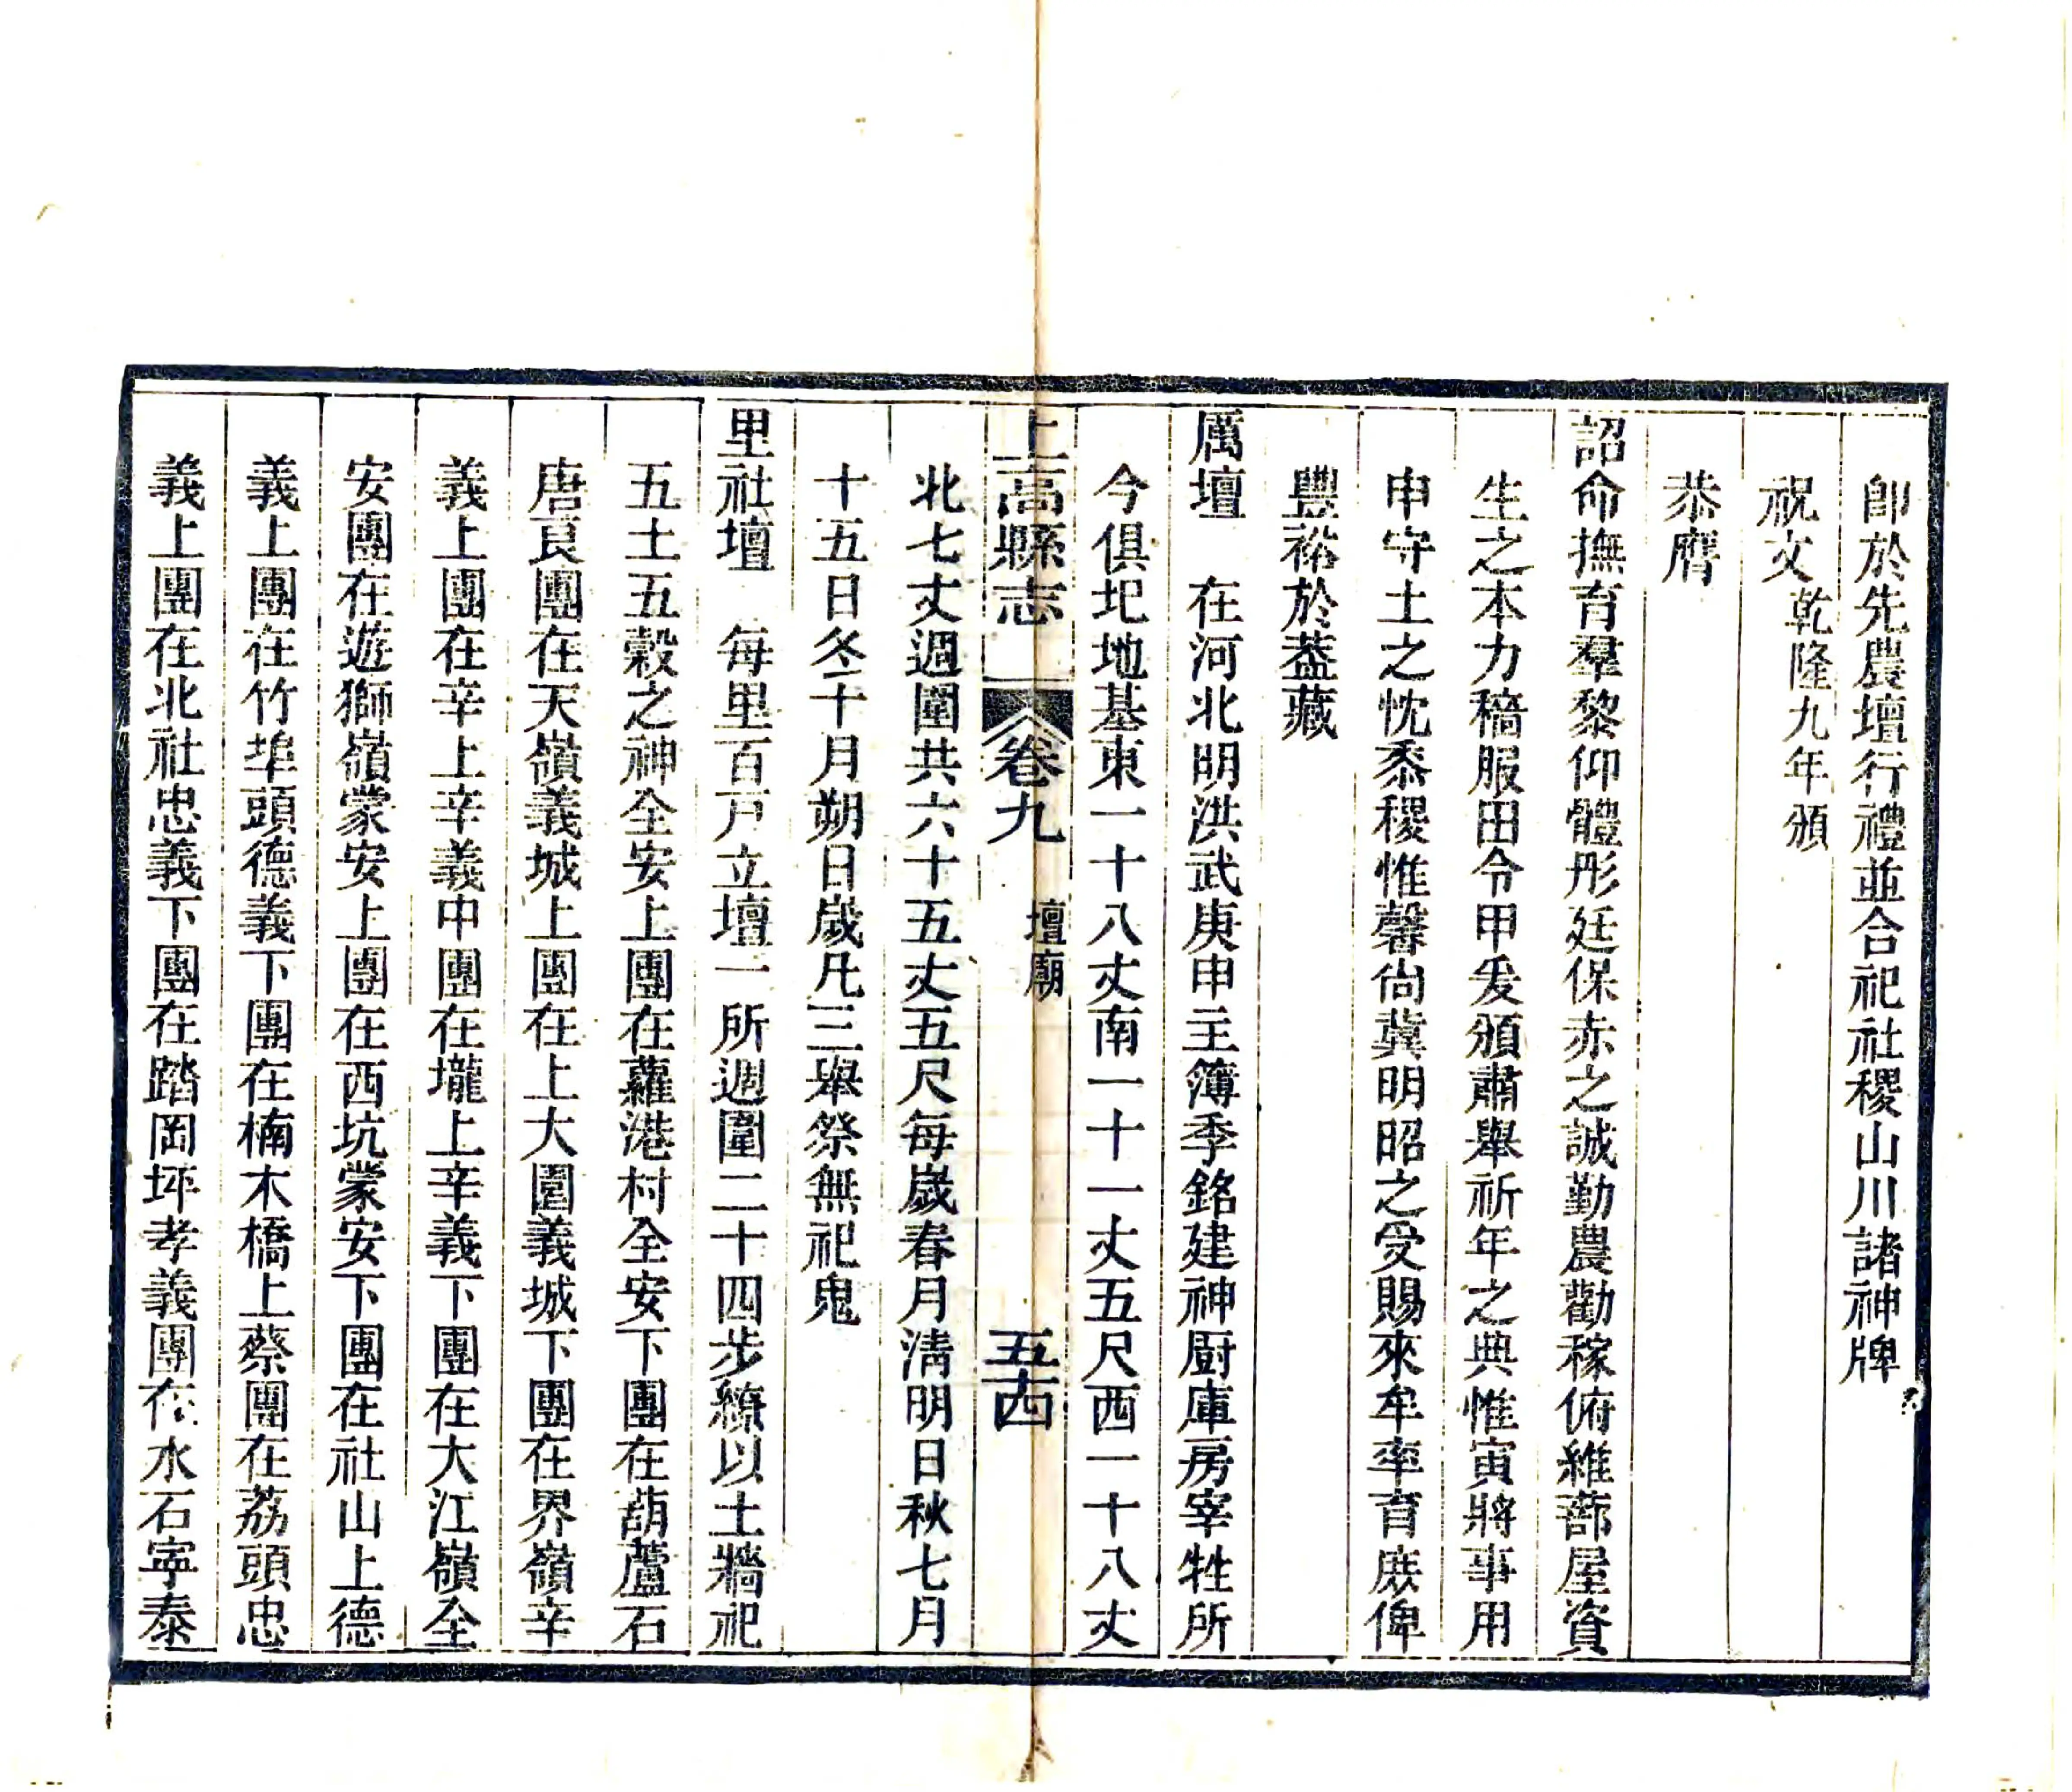 卽於先農壇行禮並合祀社稷山川諸神牌
祝文乾隆九年頒
恭膺
詔命撫育羣黎仰體彤廷保赤之誠勤農勸稼俯維蔀屋資
生之本力穡服田令甲爰頒肅舉祈年之典惟寅將事用
申守土之忱黍稷惟馨尚冀明昭之受賜來牟率育庶俾
豐裕於蓋藏
厲壇　在河北明洪武庚申主簿季銘建神厨庫房宰牲所
今俱圯地基東一十八丈南一十一丈五尺西一十八丈
上高縣志　卷九　壇廟　五四
北七丈週圍共六十五丈五尺每歲春月淸明日秋七月
十五日冬十月朔日歲凡三舉祭無祀鬼
里社壇　每里百戸立壇一所週圍二十四步繚以土牆祀
五土五穀之神全安上團在蘿港村全安下團在葫蘆石
唐良團在天嶺義城上團在上大園義城下團在界嶺辛
義上團在辛上辛義中團在壠上辛義下團在大江嶺全
安團在遊獅嶺蒙安上團在西坑蒙安下團在社山上德
義上團在竹埠頭德義下團在楠木橋上蔡團在荔頭忠
義上團在北社忠義下團在踏岡坪孝義團在水石寧泰